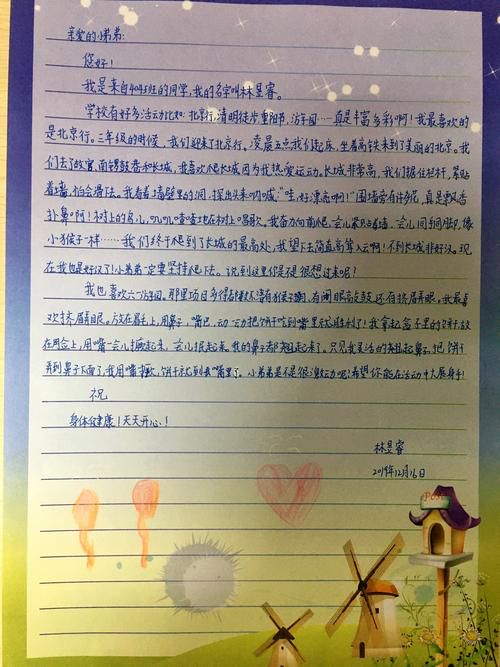 亲爱的小弟弟:
您好!
我是来自404班的同学,我的名字叫林昱睿。
学校有好多活动比如:北京行,清明徒步,重阳书,游园……真是丰富多彩啊!我最喜欢的
是北京行。三年级的时候,我们迎来了北京行。凌晨五点我们起床,坐着高铁来到了美丽的北京。我
们去了故宫,南锣鼓巷和长城,我喜欢爬长城因为我热爱运动。长城非常高,我们抓住栏杆,紧贴
着墙,怕会滑法。我看着墙壁里的洞,探出头来呐喊,“哇,好漂亮啊!”围墙旁有许多花,真是香
扑鼻啊!树上的鸟儿,叽叽喳喳地在树上唱歌。我奋力向前爬,会儿紧贴着墙,会儿同手同脚,像
小猴子一样……我们终于爬到了长城的最高处,我望下去简直高耸入云啊!不到长城非好汉。现
在我也是好汉了!小弟弟一定要坚持爬下去。说到这里你是不是很想过来呢!
我也喜欢六一游园。那里项目多得
有闹眼击鼓还有挤眉弄眼。我最喜
欢挤眉弄眼。放在眉毛上,用鼻子,嘴巴,动一动把饼干吃到嘴里就
我拿起盒子里的饼干放
在眼睛上,用嘴一会儿撅起来,会儿抿起来。我的鼻子都翘起来了。只见我灵活的翘起鼻子,把饼干
弄到鼻子下面了,我用嘴撅,饼干就到我嘴里了。小弟弟是不是很激动呢!希望你能在活动中大展身手!
祝
身体健康!天天开心!
林昱睿
2019年12月16日
Post